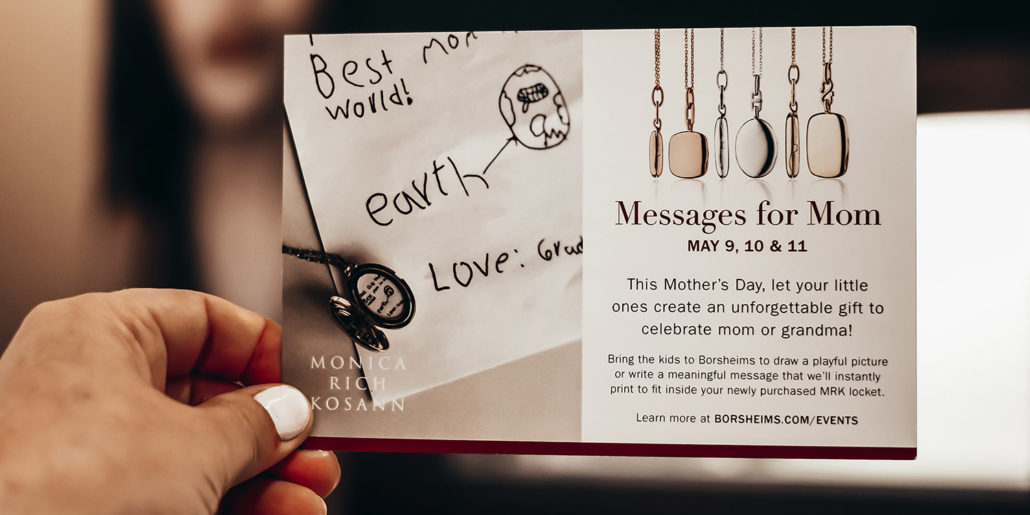 Best mom
world!
earth
Love:
MONICA
RICH
KOSANN
Messages for Mom
MAY 9, 10 & 11
This Mother's Day, let your little
ones create an unforgettable gift to
celebrate mom or grandma!
Bring the kids to Borsheims to draw a playful picture
or write a meaningful message that we'll instantly
print to fit inside your newly purchased MRK locket.
Learn more at BORSHEIMS.COM/EVENTS